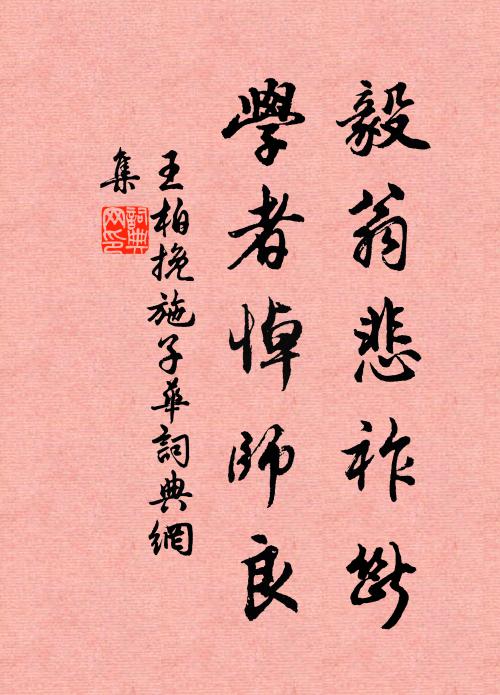 毅翁悲祚斷
學者悼師良
王柏挽施子華詞典網
集
詞典
网印